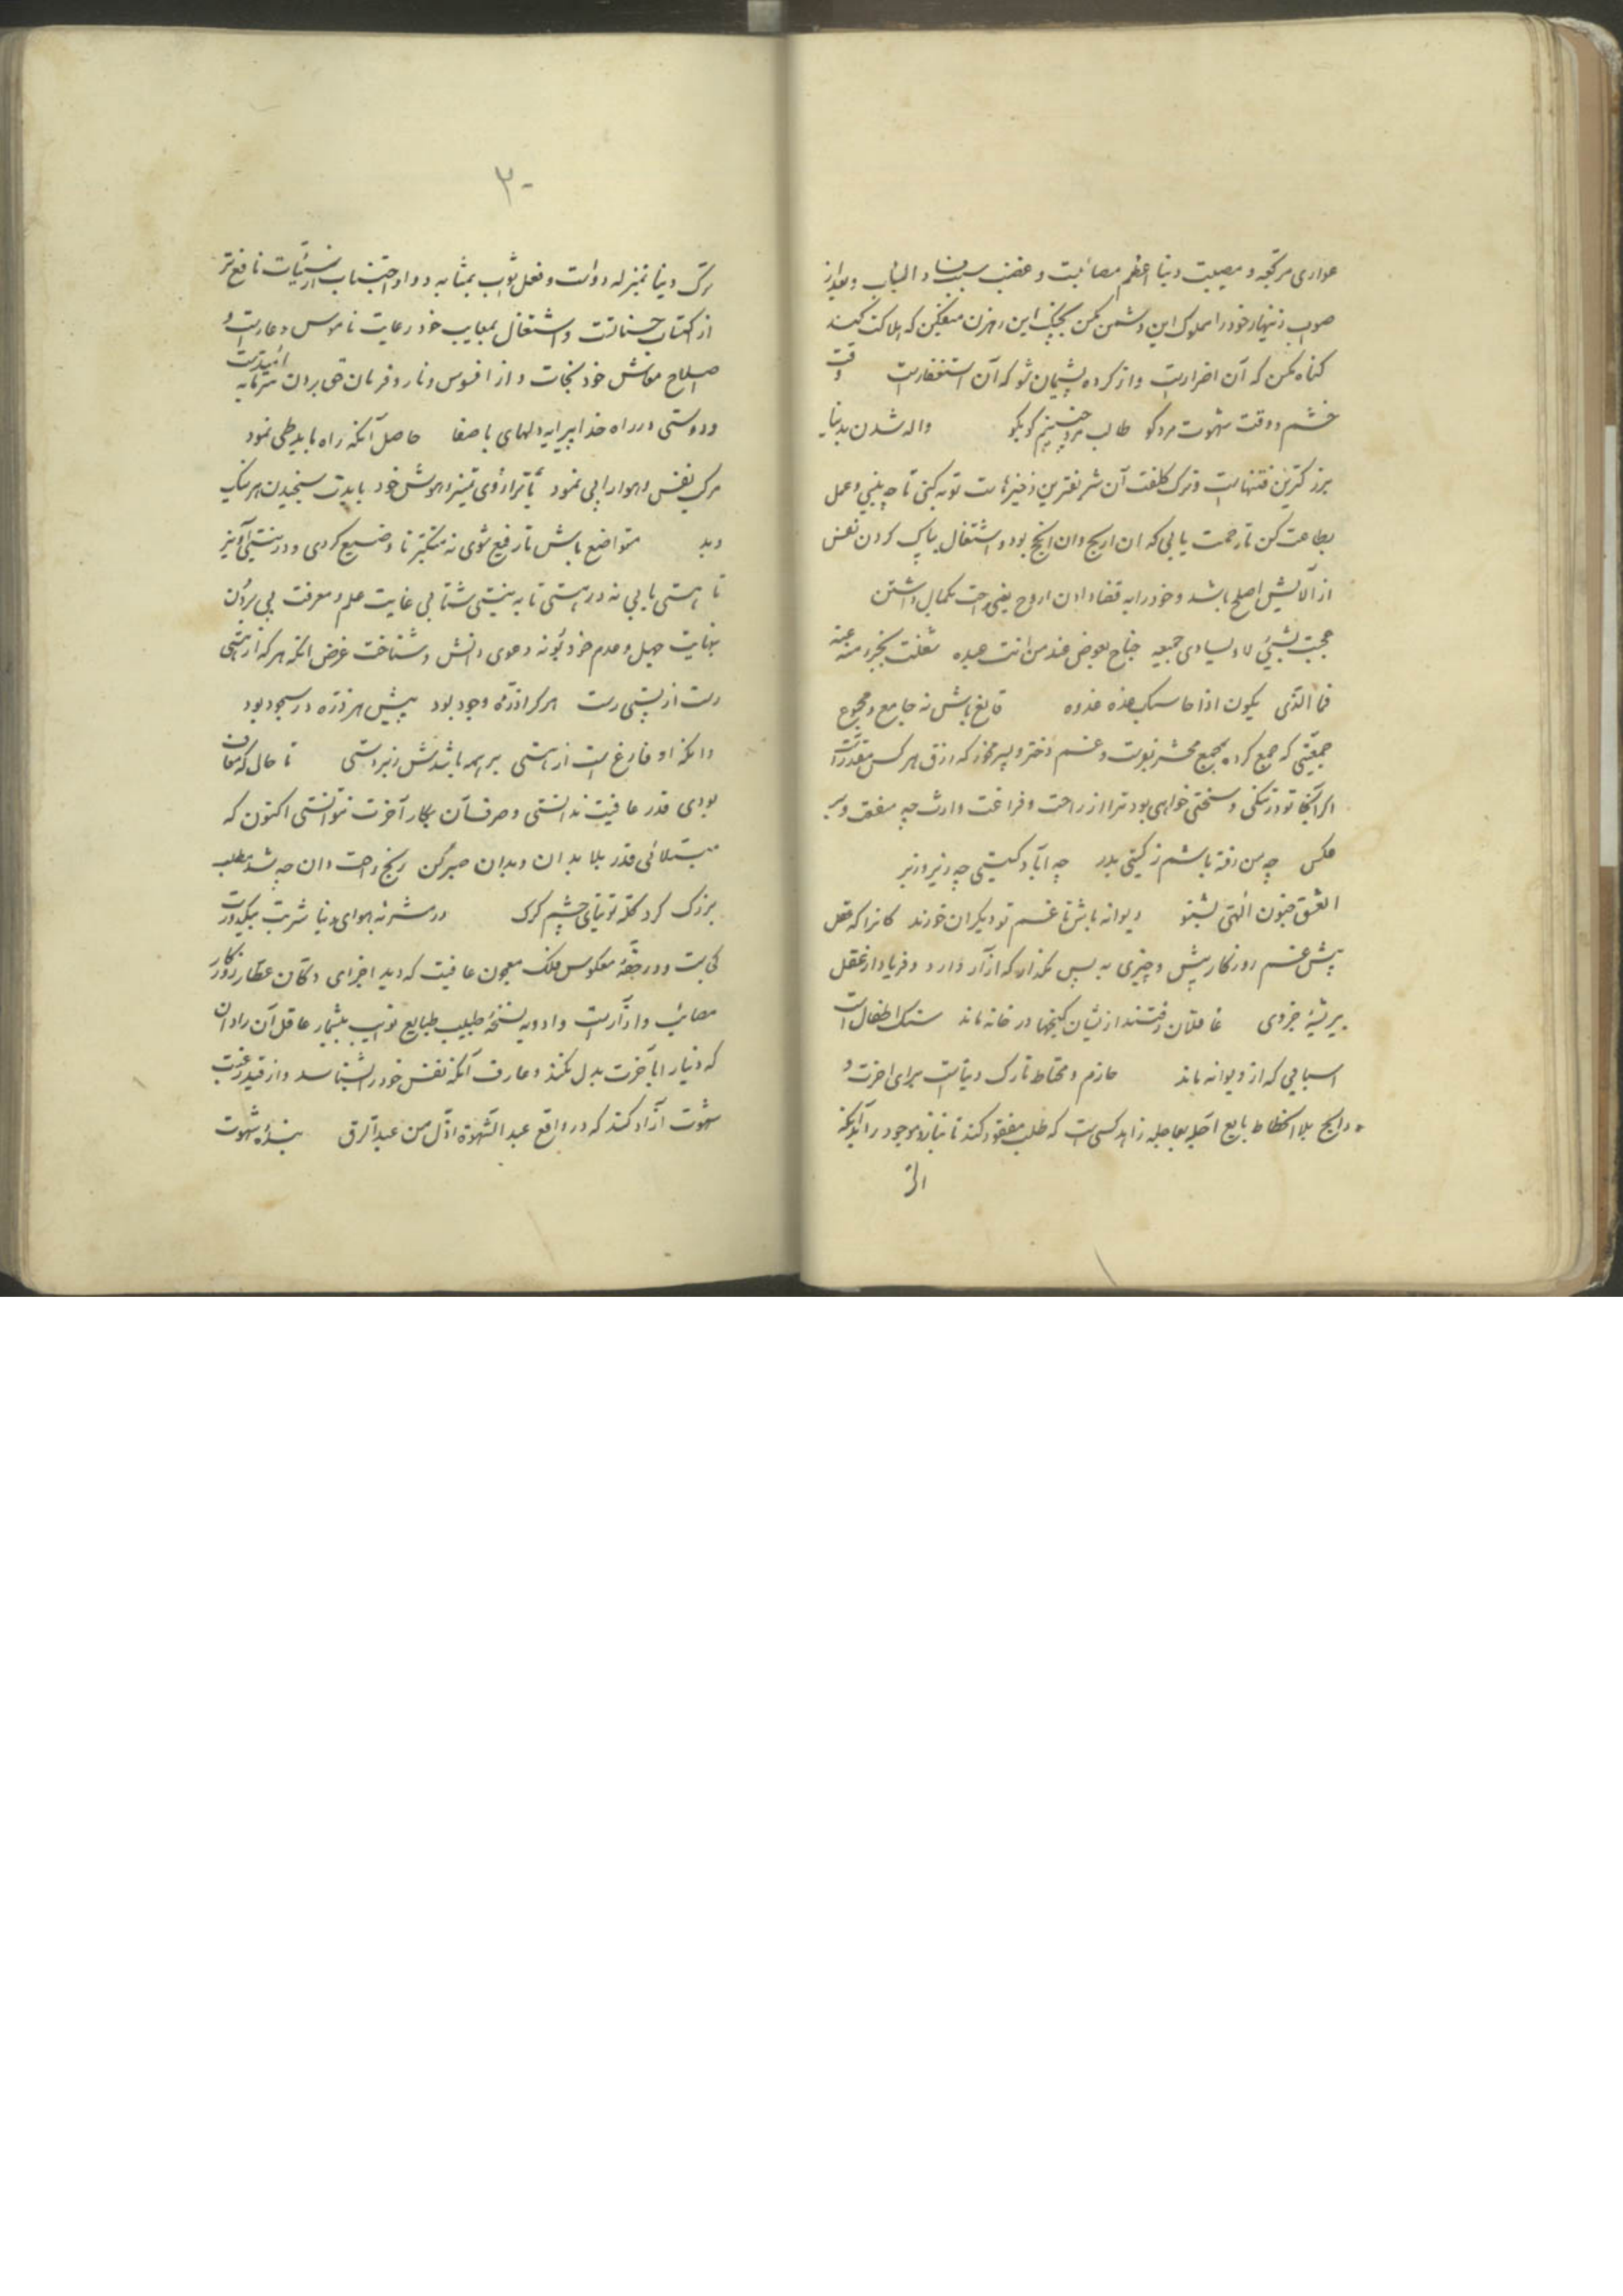 عواری مرتجعه و مصیبت دنیا اعظم مصائبت و غضب سبب فساد الباب و بعد از
صواب زنهار خود را مملوک این دشمن مکن بچنگ این رهزن میفکن که هلاکت کند
گناه مکن که آن اضرارست و از کرده پشیمان شو که آن استغفارست وقت
خشم و وقت شهوت مرد کو طالب مرد چنینم کو بکو واله شدن بدنیا
بزرگترین فتنهاست و ترک کلفت آن شریفترین ذخیرهاست توبه کنی تا چه بینی و عمل
بطاعت کن تا رحمت یابی که ان اربح و ان انجح بود و اشتغال بپاک کردن نفس
از آلایش اصلح باشد و خود را به قضا دادن اروح یعنی راحت بکمال داشتن
عجبت لشیئ لا ولیساوی جمیعه جناح بعوض عند من انت عبده شغلت بجزء منه عنه
فما الذی یکون اذا حاسبک عنده غدوه قانع باش نه جامع و مجموع
جمعیتی که جمع کرده بمجمع محشر نبوت و غم دختر و پسر مخور که رزق هر کس مقدرست
اگر آنجا تو در تنگی و سختی خواهی بود ترا از راحت و فراغت وارث چه منفعت و بر
عکس چه من رفته باشم ز گیتی بدر چه آباد گیتی چه زیر و زبر
العشق جنون الهی بشنو دیوانه باش تا غم تو دیگران خورند کانرا که عقل
بیش غم روزگار بیش و چیزی به پس مگذار که آزار دارد و فریاد از عقل
بیریشهٔ خردی غافلان رفتند از ایشان گنجها در خانه ماند سنگ اطفال است
اسبابی که از دیوانه ماند حازم و محتاط تارک دنیاست برای اخرت و
رابح بلا انحطاط بایع اجله بعاجله زاهد کسی است که طلب مفقود نکند تا نیازد موجود را آنکه
از
۳۰
ترک دنیا بمنزله دولت و فعل ثواب بمثابه دوا و اجتناب از سیئات نافع تر
از اکتساب حسناتت و اشتغال بمعایب خود رعایت ناموس و عارست و
اصلاح معاش خود نجات و از افسوس و نار و فرمان حق بردن سرمایه امیدست
و دوستی در راه خدا پیرایه دلهای با صفا حاصل آنکه راه باید طی نمود
ترک نفس و هوا را پی نمود با ترازوی تمیز و هوش خود بایدت سنجیدن هر نیک
و بد متواضع باش تا رفیع شوی نه متکبر تا وضیع گردی و در نیستی آویز
تا هستی یابی نه در هستی تا به نیستی شتابی غایت علم و معرفت پی بردن
بنهایت جهل و عدم خود بُوَد نه دعوی دانش و شناخت غرض انکه هر که از هستی
رست از پستی رست هر کرا ذرّه وجود بود پیش هر ذره در سجود بود
وانکه او فارغ است از هستی بر همه باشدش زبردستی تا حال که معاف
بودی قدر عافیت ندانستی و صرف آن بکار آخرت نتوانستی اکنون که
مبتلائی قدر بلا بدان و بدان صبر کن رنج راحت دان چه شد مطلب
بزرگ گرد گله توتیای چشم گرگ در مشربه هوای دنیا شربت بیکدورت
کی است و در حقهٔ معکوس فلک معجون عافیت که دید اجزای دکان عطار روزگار
مصائب و ازارست و ادویه نسخهٔ طبیب طبایع نوایب بیشمار عاقل آن را دان
که دنیا را بآخرت بدل نکند و عارف آنکه نفس خود را بشناسد و از قید رغبت
شهوت آزاد کند که در واقع عبد الشهوة اذل من عبد الرق بندهٔ شهوت